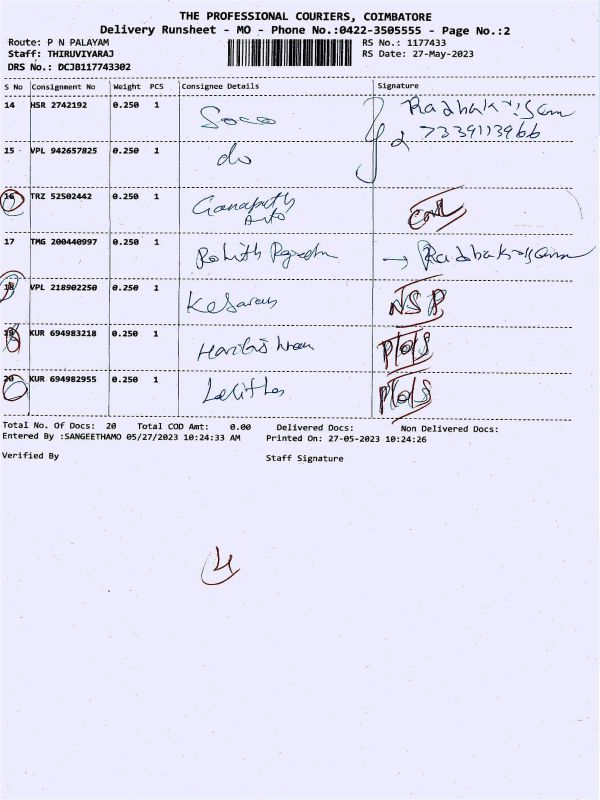 THE PROFESSIONAL COURIERS, COIMBATORE
Delivery Runsheet - MO - Phone No.:0422-3505555 - Page No.:2
Route: P N PALAYAM RS No.: 1177433
Staff: THIRUVIYARAJ RS Date: 27-May-2023
DRS No.: DCJB117743302
S No Consignment No Weight PCS Consignee Details Signature
14 HSR 2742192 0.250 1 Radhakrishnan
7339113966
15 VPL 942657825 0.250 1 do
16 TRZ 52502442 0.250 1 Ganapathy
Auto
17 TMG 200440997 0.250 1 Rohith → Radhakrishnan
18 VPL 218902250 0.250 1 Kesavan NSP
19 KUR 694983218 0.250 1 Harikrishnan P/O/S
20 KUR 694982955 0.250 1 Lalitha P/O/S
Total No. Of Docs: 20 Total COD Amt: 0.00 Delivered Docs: Non Delivered Docs:
Entered By :SANGEETHAMO 05/27/2023 10:24:33 AM Printed On: 27-05-2023 10:24:26
Verified By Staff Signature
4